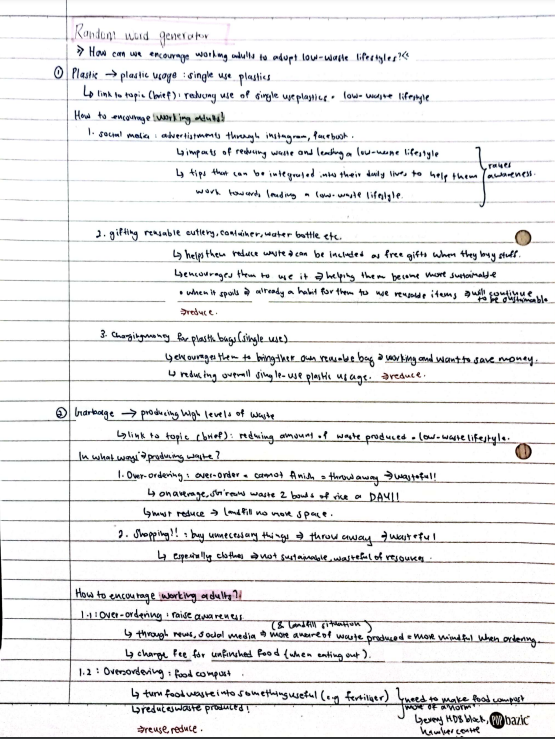 Random word generator
→ How can we encourage working adults to adopt low-waste lifestyles?
① Plastic → plastic usage : single use plastics
↳ link to topic (brief) : reducing use of single use plastics = low-waste lifestyle
How to encourage working adults?
1. social media : advertistments through instagram, facebook.
↳ impacts of reducing waste and leading a low-waste lifestyle
↳ tips that can be integrated into their daily lives to help them
work towards leading a low-waste lifestyle.
raises
awareness.
2. gifting reusable cutlery, container, water bottle etc.
↳ helps them reduce waste ⇒ can be included as free gifts when they buy stuff.
↳ encourages them to use it ⇒ helping them become more sustainable
• when it spoils ⇒ already a habit for them to use reusable items ⇒ will continue
to be sustainable
⇒ reduce.
3. Charging money for plastic bags (single use)
↳ encourages them to bring their own reusable bag ⇒ working and want to save money.
↳ reducing overall single-use plastic usage. ⇒ reduce.
② Garbage → producing high levels of waste
↳ link to topic (brief) : reducing amount of waste produced = low-waste lifestyle.
In what ways ⇒ producing waste?
1. Over-ordering : over-order = cannot finish = throw away → wasteful!
↳ on average, waste 2 bowls of rice a DAY!!
↳ must reduce → landfill no more space.
2. Shopping!! : buy unnecessary things ⇒ throw away → wasteful
↳ especially clothes ⇒ not sustainable, wasteful of resources.
How to encourage working adults?
1.1 : Over-ordering : raise awareness
(& landfill situation)
↳ through news, social media ⇒ more aware of waste produced = more mindful when ordering.
↳ charge fee for unfinished food (when eating out).
1.2 : Overordering : food compost
↳ turn food waste into something useful (e.g fertiliser)
↳ reduces waste produced!
need to make food compost
more of a norm!
↳ every HDB block,
hawker centre
⇒ reuse, reduce.
POP bazic